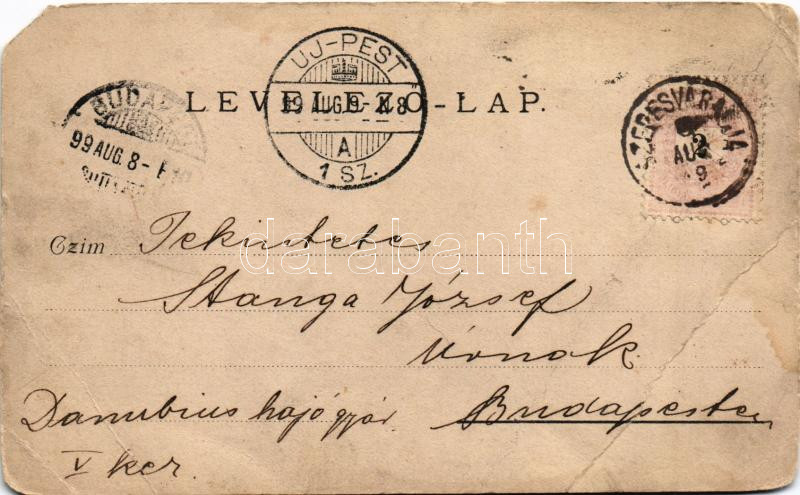 UJ-PEST
99 AUG. 9- N 8
A
1 SZ.
BUDAPEST
99 AUG. 8-
LEVELEZŐ-LAP.
SZEPESVÁRALJA
AUG
Czim
Tekintetes
Stanga József
Úrnak
Danubius hajógyár
Budapesten
V ker.
darabanth